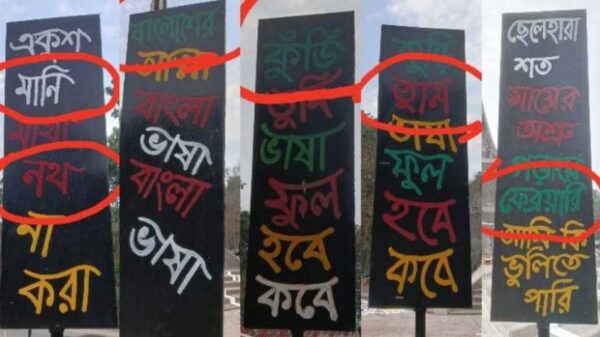 একশ
মানি
মাথা
নথ
না
করা
বাংলাশের
বাংলা
ভাষা
বাংলা
ভাষা
ভাষা
ফুল
হবে
কবে
ভাষা
ফুল
হবে
কবে
ছেলেহারা
শত
মায়ের
অশ্রু
গড়ায়ে
ফেবয়ারি
আমি কি
ভুলিতে
পারি